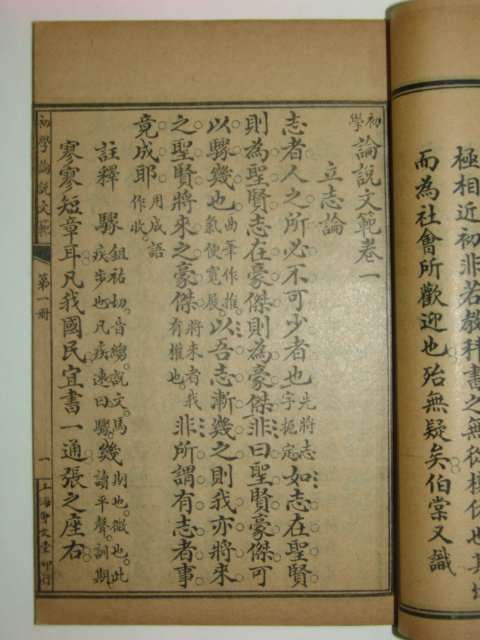 極相近初非若教科書之無從模仿也其
而為社會所歡迎也殆無疑矣伯棠又識
初學論說文範卷一
立志論
志者人之所必不可少者也先將志字扼定如志在聖賢
則為聖賢志在豪傑則為豪傑非曰聖賢豪傑可
以驟幾也曲筆作推氣便寬展以吾志漸幾之則我亦將來
之聖賢將來之豪傑將來者我有權也非所謂有志者事
竟成耶用成語作收
註釋 驟鉏祐切音縐說文馬疾步也凡疾速曰驟幾期也微也此讀平聲訓期
寥寥短章耳凡我國民宜書一通張之座右
初學論說文範 第一冊 一 上海會文堂印行